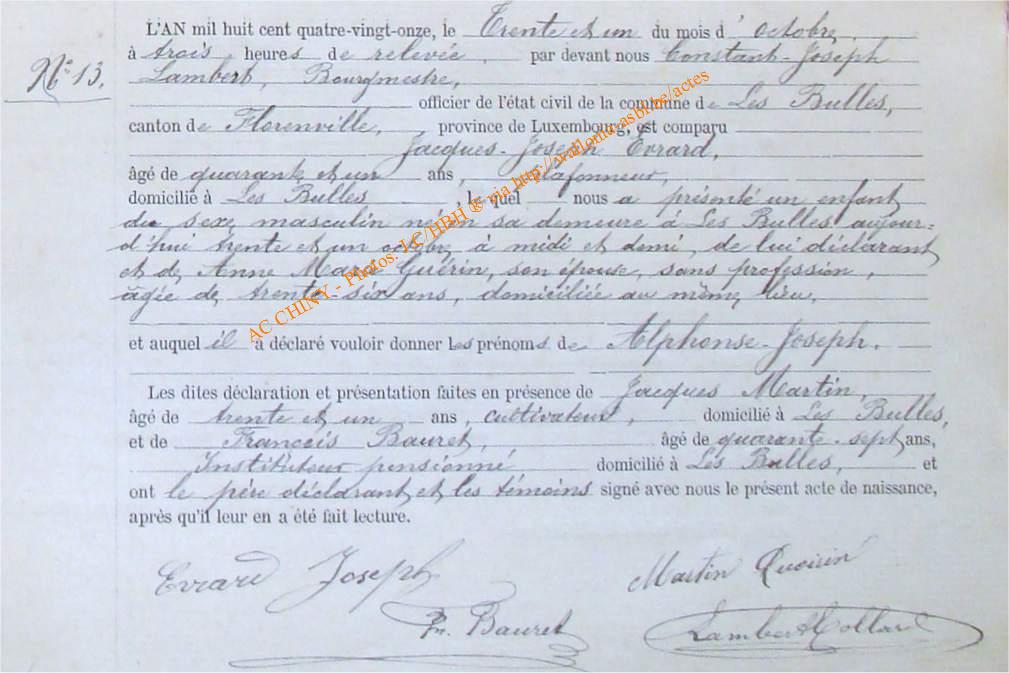 L'AN mil huit cent quatre-vingt-onze, le Trente et un du mois d'octobre
N° 13. à trois heures de relevée, par devant nous Constant-Joseph
Lambert, Bourgmestre,
officier de l'état civil de la commune de Les Bulles,
canton de Florenville, province de Luxembourg, est comparu
Jacques-Joseph Evrard,
âgé de quarante et un ans, plafonneur,
domicilié à Les Bulles, lequel nous a présenté un enfant
du sexe masculin né en sa demeure à Les Bulles aujour-
d'hui trente et un octobre, à midi et demi, de lui déclarant
et de Anne Marie Guérin, son épouse, sans profession,
âgée de trente-six ans, domiciliée au même lieu,
et auquel il a déclaré vouloir donner les prénoms de Alphonse-Joseph.
Les dites déclaration et présentation faites en présence de Jacques Martin,
âgé de trente et un ans, cultivateur, domicilié à Les Bulles,
et de François Bauret, âgé de quarante-sept ans,
Instituteur pensionné, domicilié à Les Bulles, et
ont le père déclarant et les témoins signé avec nous le présent acte de naissance,
après qu'il leur en a été fait lecture.
Evrard Joseph Martin
Fr. Bauret Lambert Collard
AC CHINY - Photos: LC/HBH ® via http://wallonia-asbl.be/actes